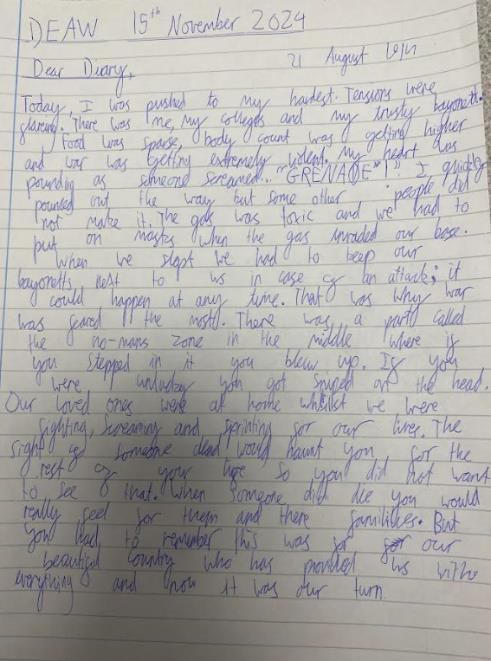 DEAW 15th November 2024
21 August
Dear Diary,
Today, I was pushed to my hardest. Tensions were
There was me, my colleges and my trusty bayonett.
, food was sparse, body count was getting higher
and war was getting extremely violent. My heart was
pounding as someone screamed... "GRENADE"! I quickly
pounced out the way but some other people did
not make it. The gas was toxic and we had to
put on masks when the gas invaded our base.
When we slept we had to keep our
bayonetts next to us in case of an attack; it
could happen at any time. That was why war
was feared the most. There was a part called
the no-mans zone in the middle where if
you stepped in it you blew up. If you
were unlucky you got sniped on the head.
Our loved ones were at home whilst we were
fighting, screaming and sprinting for our lives. The
sight of someone dead would haunt you for the
rest of your life so you did not want
to see that. When someone did die you would
really feel for them and there familikes. But
you had to remember this was for our
beautiful country who has provided us with
everything and now it was our turn